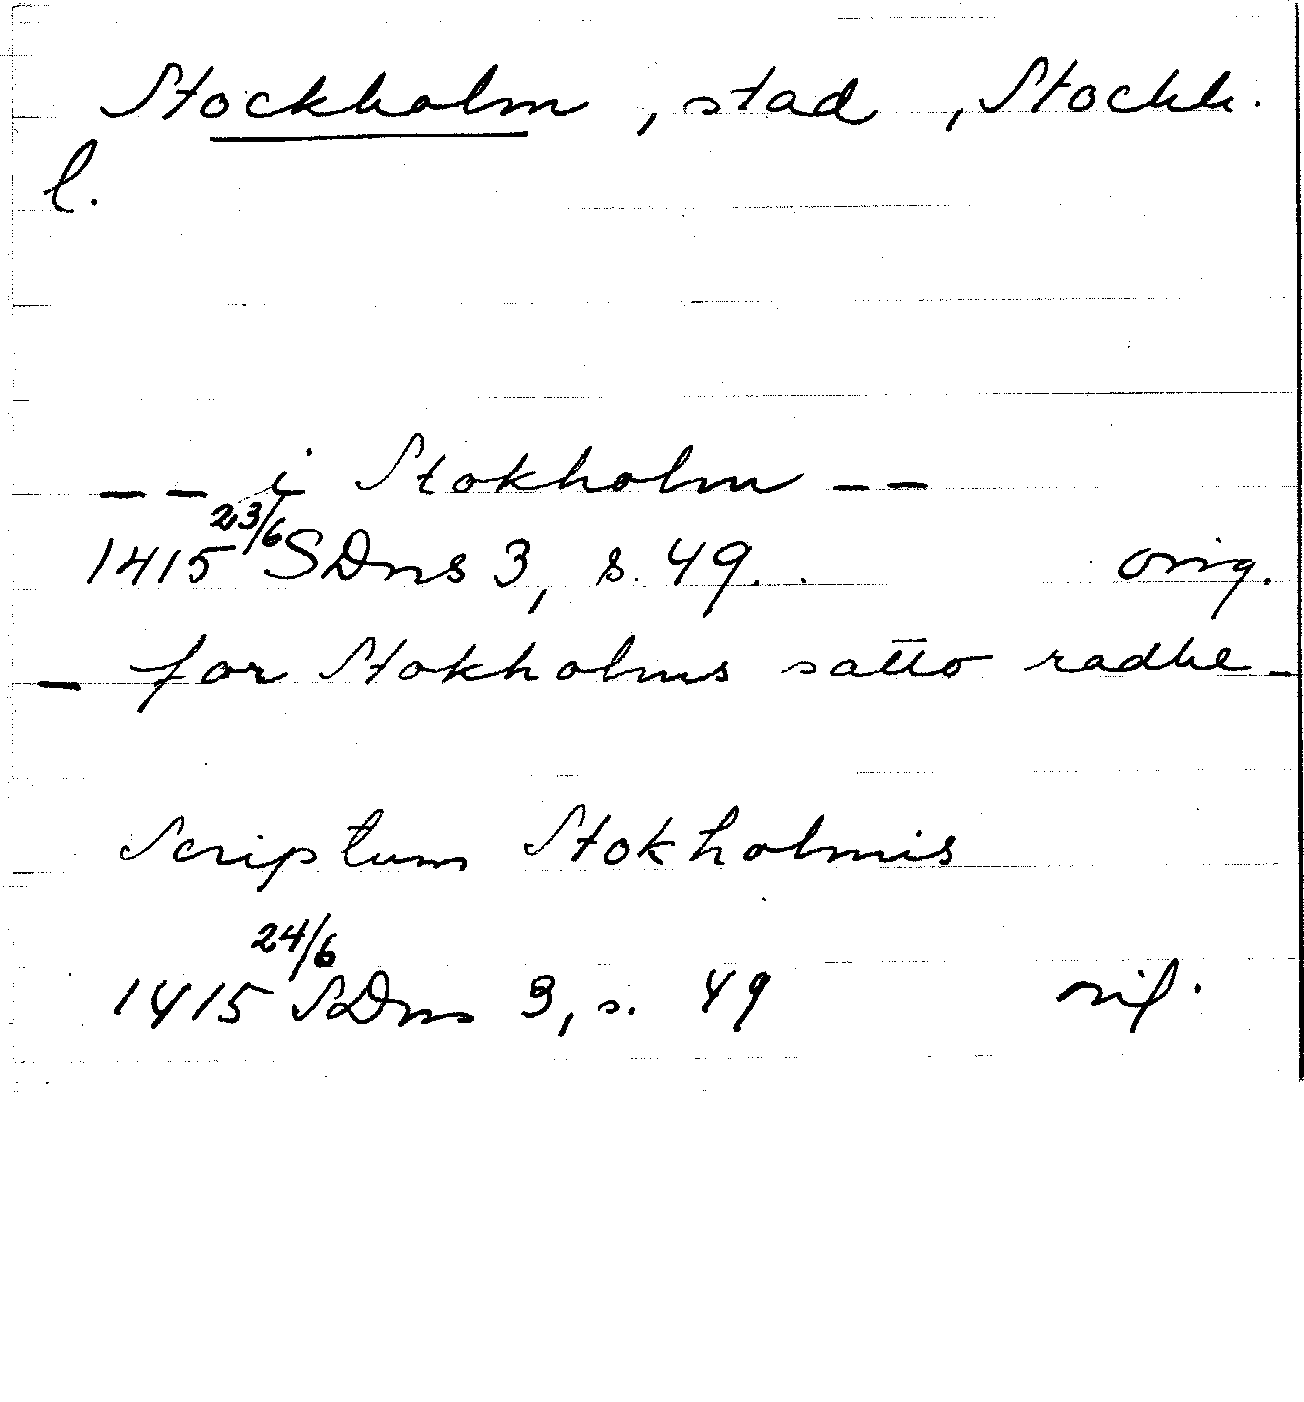 Stockholm, stad, Stockh.
l.
-- i Stokholm --
1415 23/6 SDns 3, s. 49. orig.
- for Stokholms satto radhe -
Scriptum Stokholmis
24/6
1415 SDns 3, s. 49